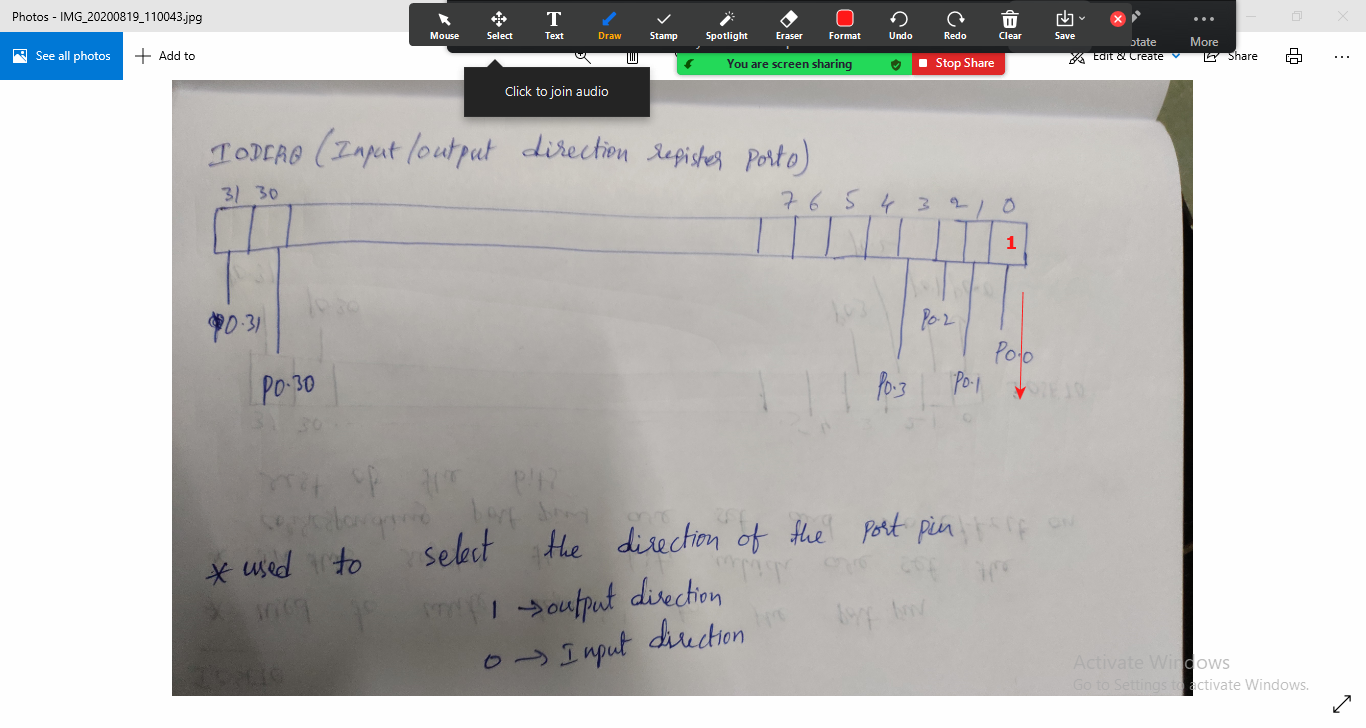 Photos - IMG_20200819_110043.jpg
Mouse Select Text Draw Stamp Spotlight Eraser Format Undo Redo Clear Save More
See all photos
Add to
You are screen sharing
Stop Share
Edit & Create
Share
Click to join audio
IODIR0 (Input/output direction register Port0)
31 30 7 6 5 4 3 2 1 0
1
P0.31
P0.2
P0.0
P0.30
P0.3
P0.1
* used to select the direction of the port pin
1 → output direction
0 → Input direction
Activate Windows
Go to Settings to activate Windows.